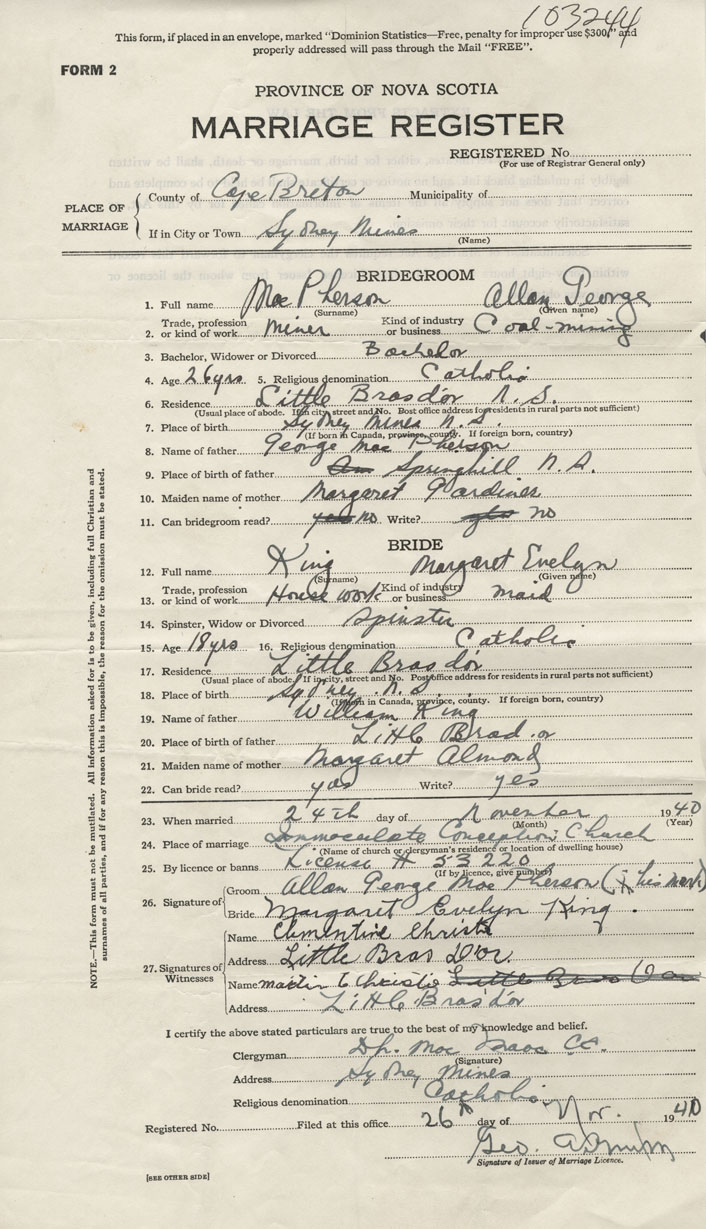 103244
This form, if placed in an envelope, marked "Dominion Statistics—Free, penalty for improper use $300," and
properly addressed will pass through the Mail "FREE".
FORM 2
PROVINCE OF NOVA SCOTIA
MARRIAGE REGISTER
REGISTERED No.
(For use of Registrar General only)
PLACE OF MARRIAGE
County of Cape Breton Municipality of
If in City or Town Sydney Mines
(Name)
BRIDEGROOM
1. Full name MacPherson Allan George
(Surname) (Given name)
2. Trade, profession or kind of work miner Kind of industry or business Coal-mining
3. Bachelor, Widower or Divorced Bachelor
4. Age 26 yrs. 5. Religious denomination Catholic
6. Residence Little Brasdor N.S.
(Usual place of abode. If in city, street and No. Post office address for residents in rural parts not sufficient)
7. Place of birth Sydney Mines N.S.
(If born in Canada, province, county. If foreign born, country)
8. Name of father George MacPherson
9. Place of birth of father Springhill N.S.
10. Maiden name of mother Margaret Gardiner
11. Can bridegroom read? yes no Write? yes no
BRIDE
12. Full name King Margaret Evelyn
(Surname) (Given name)
13. Trade, profession or kind of work House work Kind of industry or business maid
14. Spinster, Widow or Divorced Spinster
15. Age 18 yrs 16. Religious denomination Catholic
17. Residence Little Brasdor
(Usual place of abode. If in city, street and No. Post office address for residents in rural parts not sufficient)
18. Place of birth Sydney N.S.
(If born in Canada, province, county. If foreign born, country)
19. Name of father William King
20. Place of birth of father Little Brad or
21. Maiden name of mother Margaret Almond
22. Can bride read? yes Write? yes
23. When married 24th day of November 1940
(Month) (Year)
24. Place of marriage Immaculate Conception Church
(Name of church or clergyman's residence or location of dwelling house)
25. By licence or banns License # 53220
(If by licence, give number)
26. Signature of
Groom Allan George MacPherson (X his mark)
Bride Margaret Evelyn King.
27. Signatures of Witnesses
Name Clementine Christie
Address Little Bras D'or.
Name Martin Christie Little Bras D'or
Address Little Bras d'or
I certify the above stated particulars are true to the best of my knowledge and belief.
Clergyman MacIsaac
(Signature)
Address Sydney Mines
Religious denomination Catholic
Registered No. Filed at this office 26 day of Nov. 1940
Geo.
Signature of Issuer of Marriage Licence.
[SEE OTHER SIDE]
NOTE.—This form must not be mutilated. All information asked for is to be given, including full Christian and
surnames of all parties, and if for any reason this is impossible, the reason for the omission must be stated.